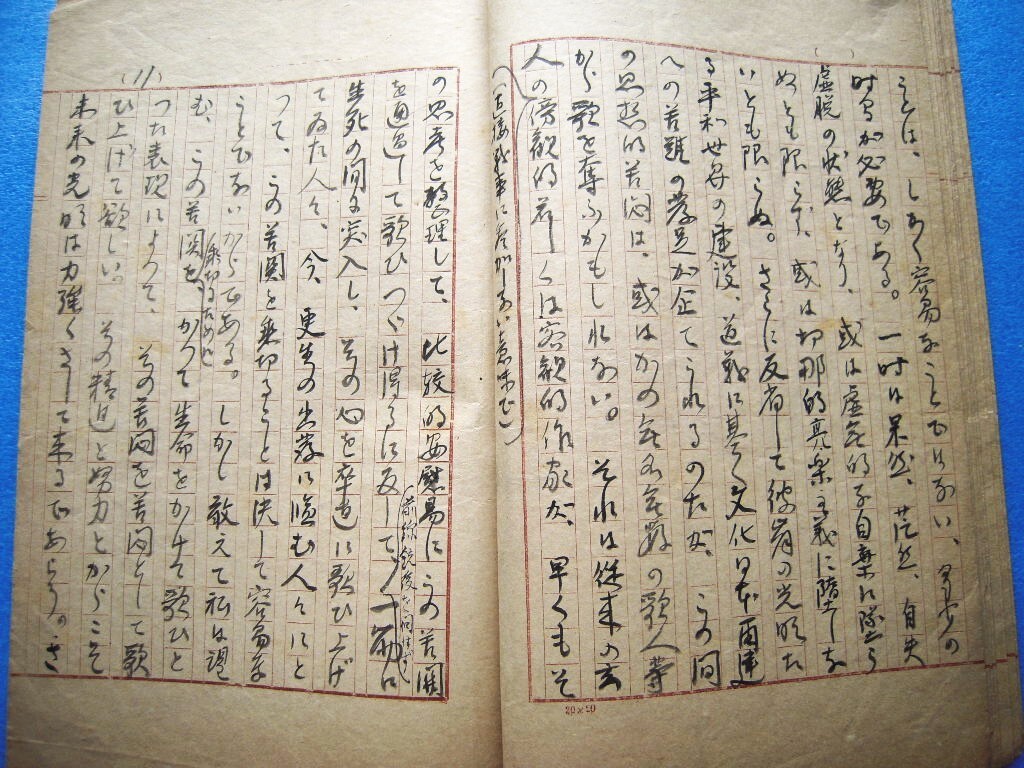 うとは、しかく容易なことではない、多少の
時間が必要である。一時は呆然、茫然、自失
虚脱の状態となり、或は虚無的な自棄に墜ら
ぬとも限らず、或は切那的享楽主義に堕しな
いとも限らぬ。さらに反省して彼岸の光明た
る平和世界の建設、道義に基く文化日本再建
への苦難の発足が企てられるのだが、この間
の思想的苦悶は、或はかの無名無数の歌人等
から歌を奪ふかもしれない。それは従来の玄
人の傍観的若しくは客観的作家が、早くもそ
(直接戦争に参加しない意味で)
の思考を整理して、比較的安慰易にこの苦関
を通過して歌ひつゞけ得るに反して、一筋に
(前線銃後を問はず)
生死の間に突入し、その心を卒直に歌ひ上げ
てゐた人々、今、更生の出発に臨む人々にと
つて、この苦関を乗切ることは決して容易な
ことでないからである。しかし敢えて私は望
む、この苦関を乗切るために、かつて生命をかけて歌ひと
つた表現によつて、その苦悶を苦悶として歌
(11)
ひ上げて欲しい。その精進と努力とからこそ
未来の光明は力強くさして来るであらう。さ
20×20